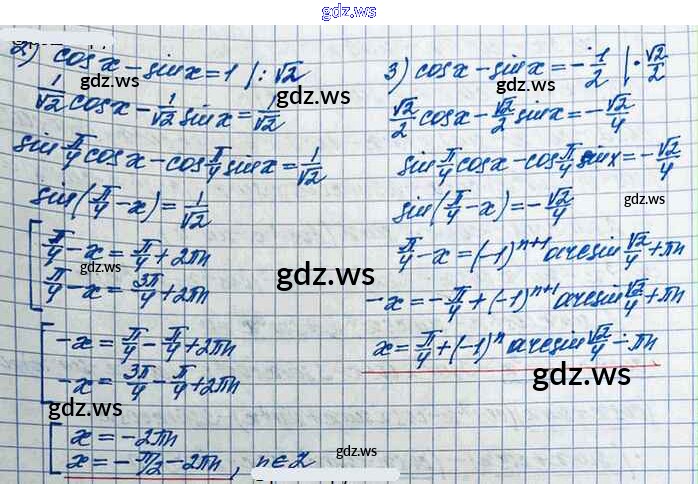 gdz.ws
gdz.ws
2) cos x - sin x = 1 | : √2
1/√2 cos x - 1/√2 sin x = 1/√2
sin π/4 cos x - cos π/4 sin x = 1/√2
sin(π/4 - x) = 1/√2
[ π/4 - x = π/4 + 2πn
π/4 - x = 3π/4 + 2πn
[ -x = π/4 - π/4 + 2πn
-x = 3π/4 - π/4 + 2πn
[ x = -2πn
x = -π/2 - 2πn, n∈Z
3) cos x - sin x = -1/2 | · √2/2
√2/2 cos x - √2/2 sin x = -√2/4
sin π/4 cos x - cos π/4 sin x = -√2/4
sin(π/4 - x) = -√2/4
π/4 - x = (-1)ⁿ⁺¹ arcsin √2/4 + πn
-x = -π/4 + (-1)ⁿ⁺¹ arcsin √2/4 + πn
x = π/4 + (-1)ⁿ arcsin √2/4 - πn
gdz.ws
gdz.ws
gdz.ws
gdz.ws
gdz.ws
gdz.ws
gdz.ws
gdz.ws
gdz.ws